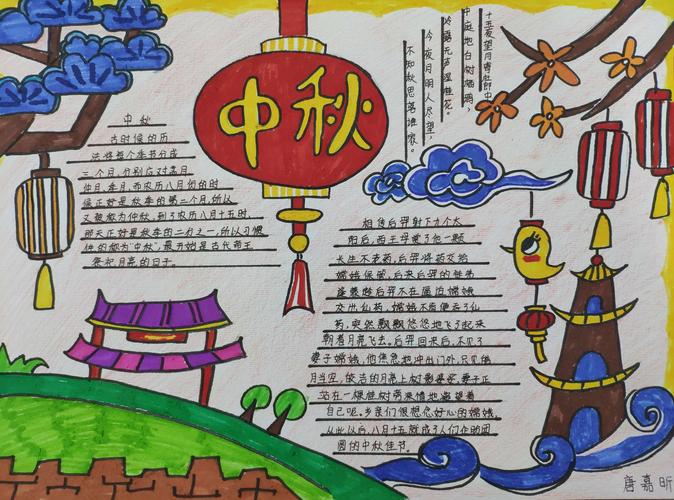 中秋
中秋
古时候的历
法将每个季节分成
三个月,分别应对孟月、
仲月、季月,而农历八月初的时
候正好是秋季的第二个月,所以
又被称为仲秋,到了农历八月十五时,
那天正好是秋季的二分之一,所以习惯
性的称为“中秋”,最开始是古代帝王
祭祀月亮的日子。
十五夜望月寄杜郎中
中庭地白树栖鸦,
冷露无声湿桂花。
今夜月明人尽望,
不知秋思落谁家。
相传后羿射下九个太
阳后,西王母赏了他一颗
长生不老药,后羿将药交给
嫦娥保管,后来后羿的徒弟
逢蒙趁后羿不在逼迫嫦娥
交出仙药,嫦娥不肯便吞了仙
药,突然飘飘悠悠地飞了起来
朝着月亮飞去。后羿回来后,不见了
妻子嫦娥,他焦急地冲出门外,只见皓
月当空,皎洁的月亮上树影婆娑,妻子正
站在一棵桂树旁深情地凝望着
自己呢。乡亲们很想念好心的嫦娥,
从此以后,八月十五就成了人们企盼团
圆的中秋佳节。
唐嘉昕